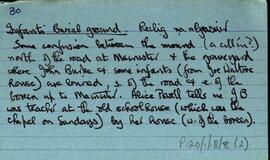 30
Infants Burial ground. Reilig na
Some confusion between the mound (a cillín?)
north of the road at Maunster & the graveyard
where John Burke & some infants (from Joe Walters
house) are buried s. of the road & e. of the
boreen up to Maunster. Alice Powell tells me JB
was teacher at the old schoolhouse (which was the
chapel on Sundays) by her house (w. of the boreen).
P120/1/8/8 (2)